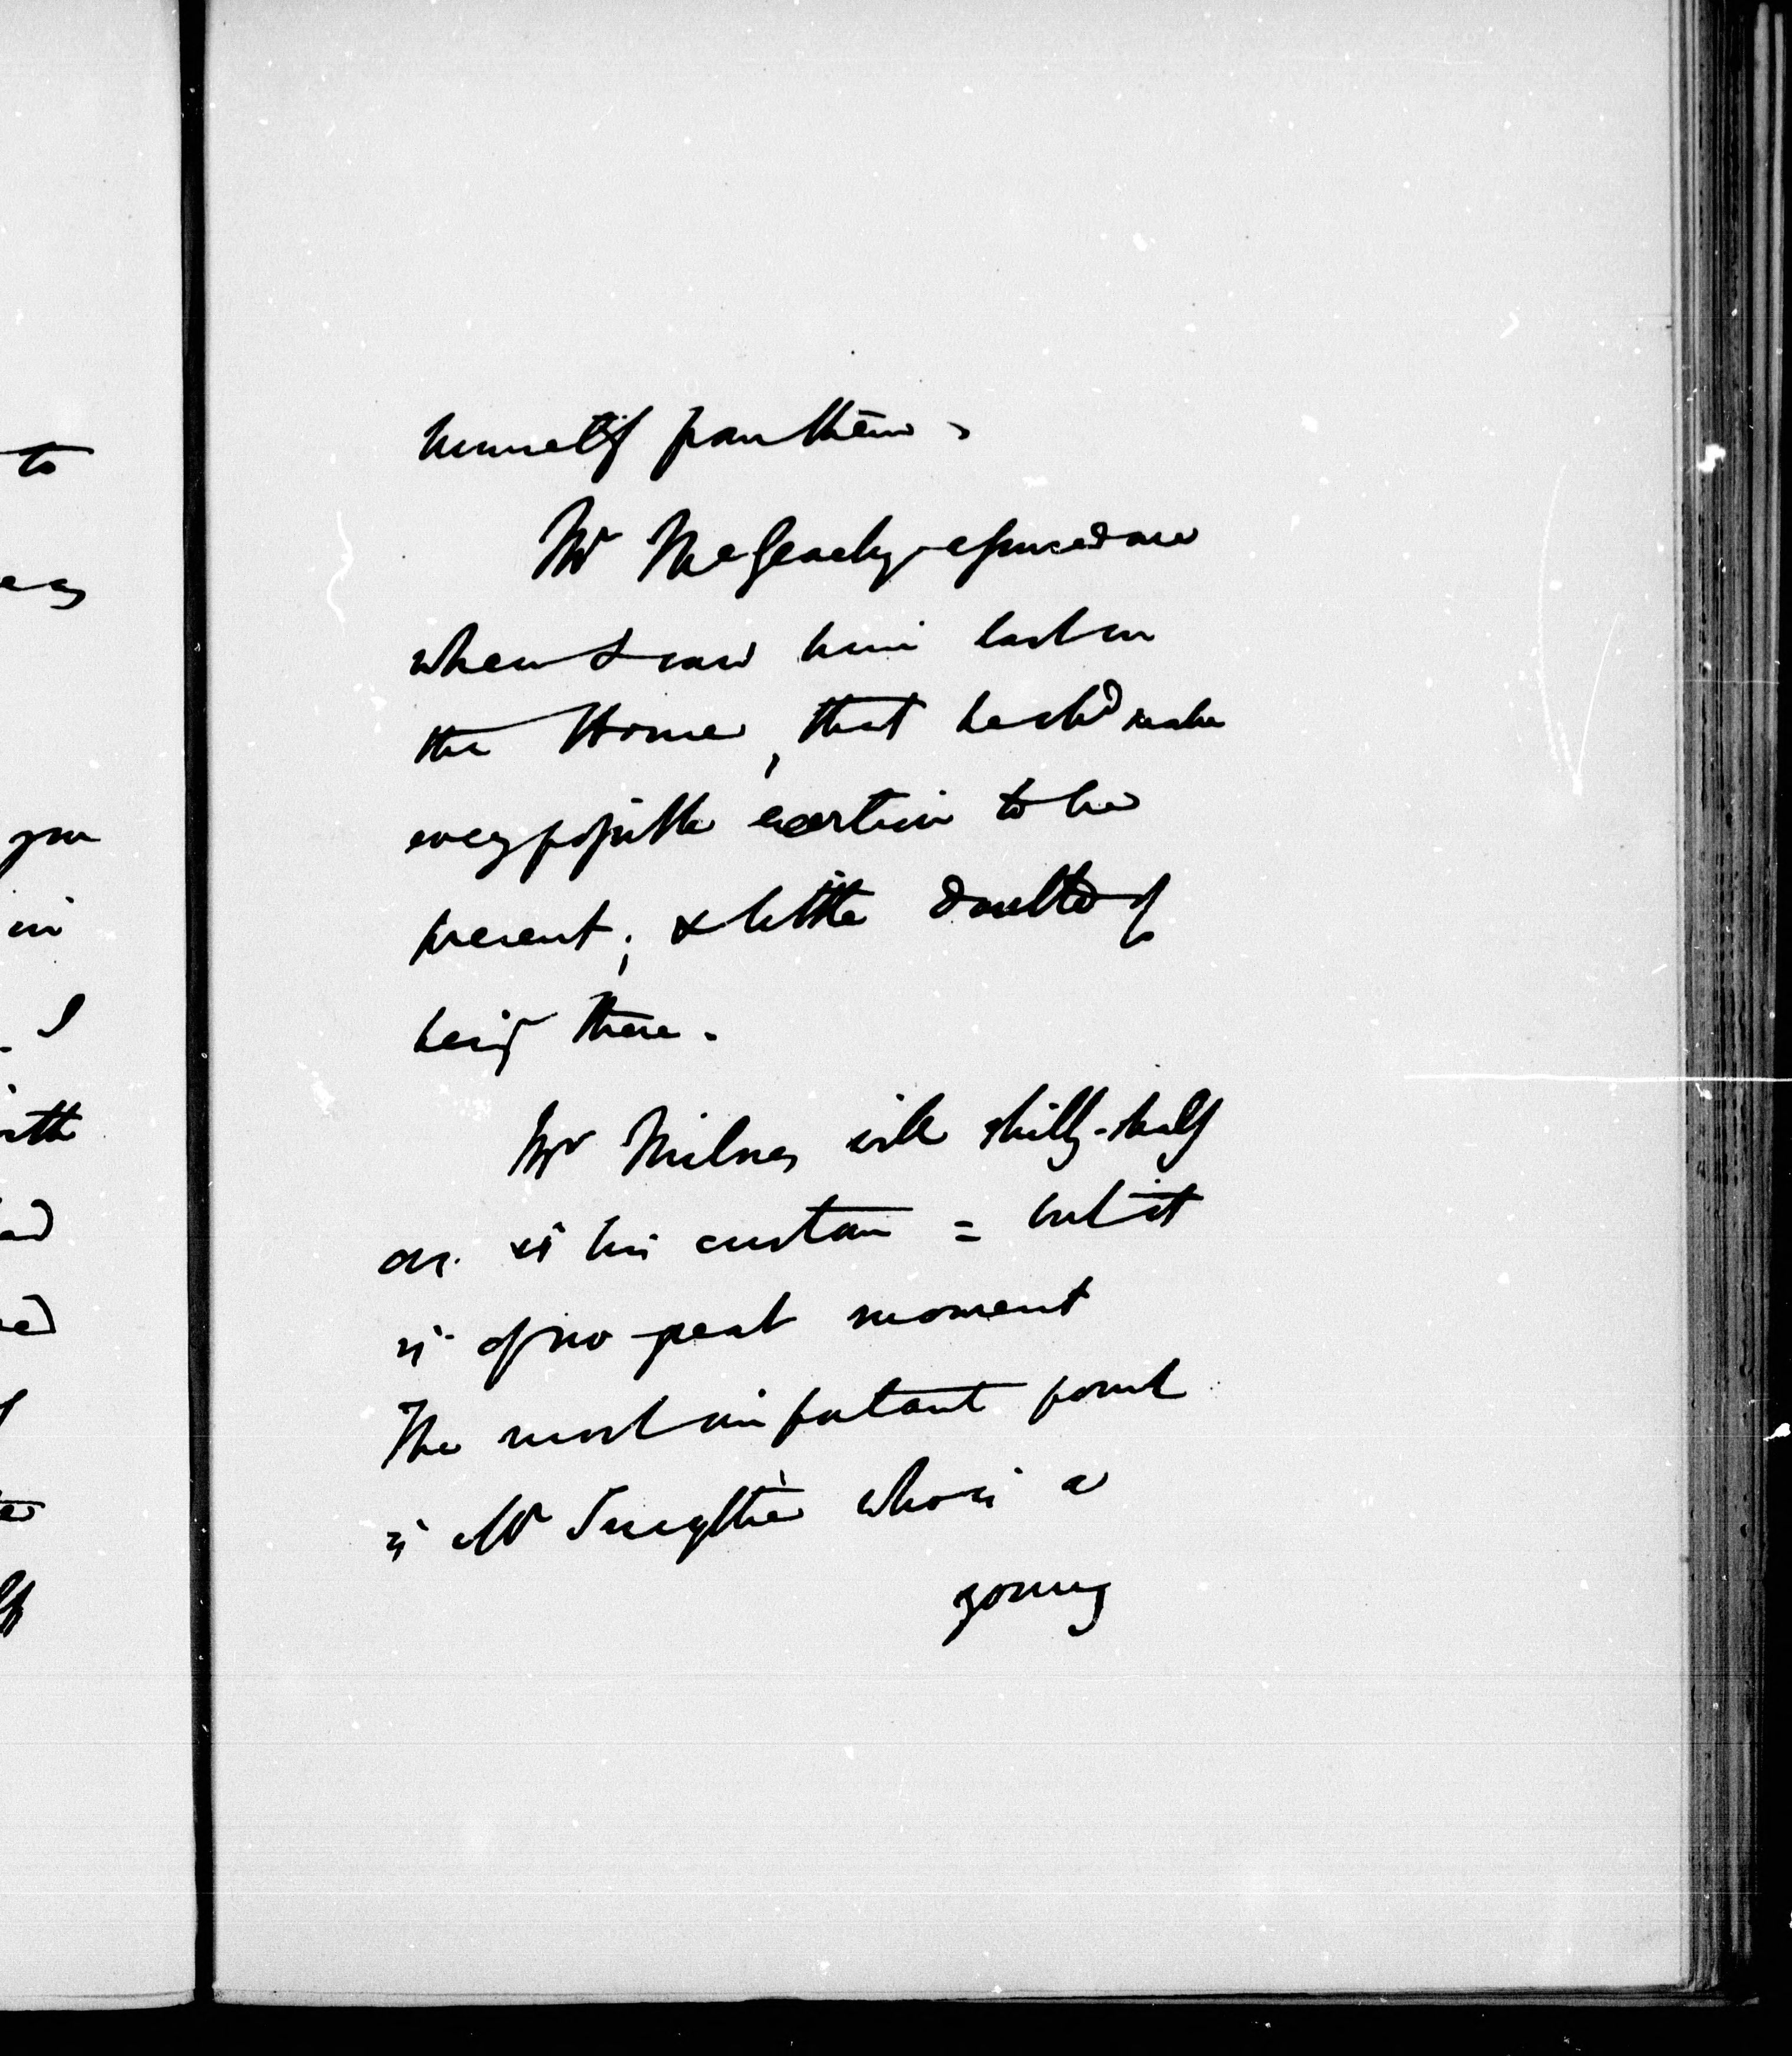 to
you
in
I
himself from them.
Mr McGeachy assured me
when I saw him last in
the House, that he shd make
every possible exertion to be
present; & little doubted of
being there.
Mr Milnes will shilly-shally
as is his custom = but it
is of no great moment
The most important point
is Mr Smythe who is a
young